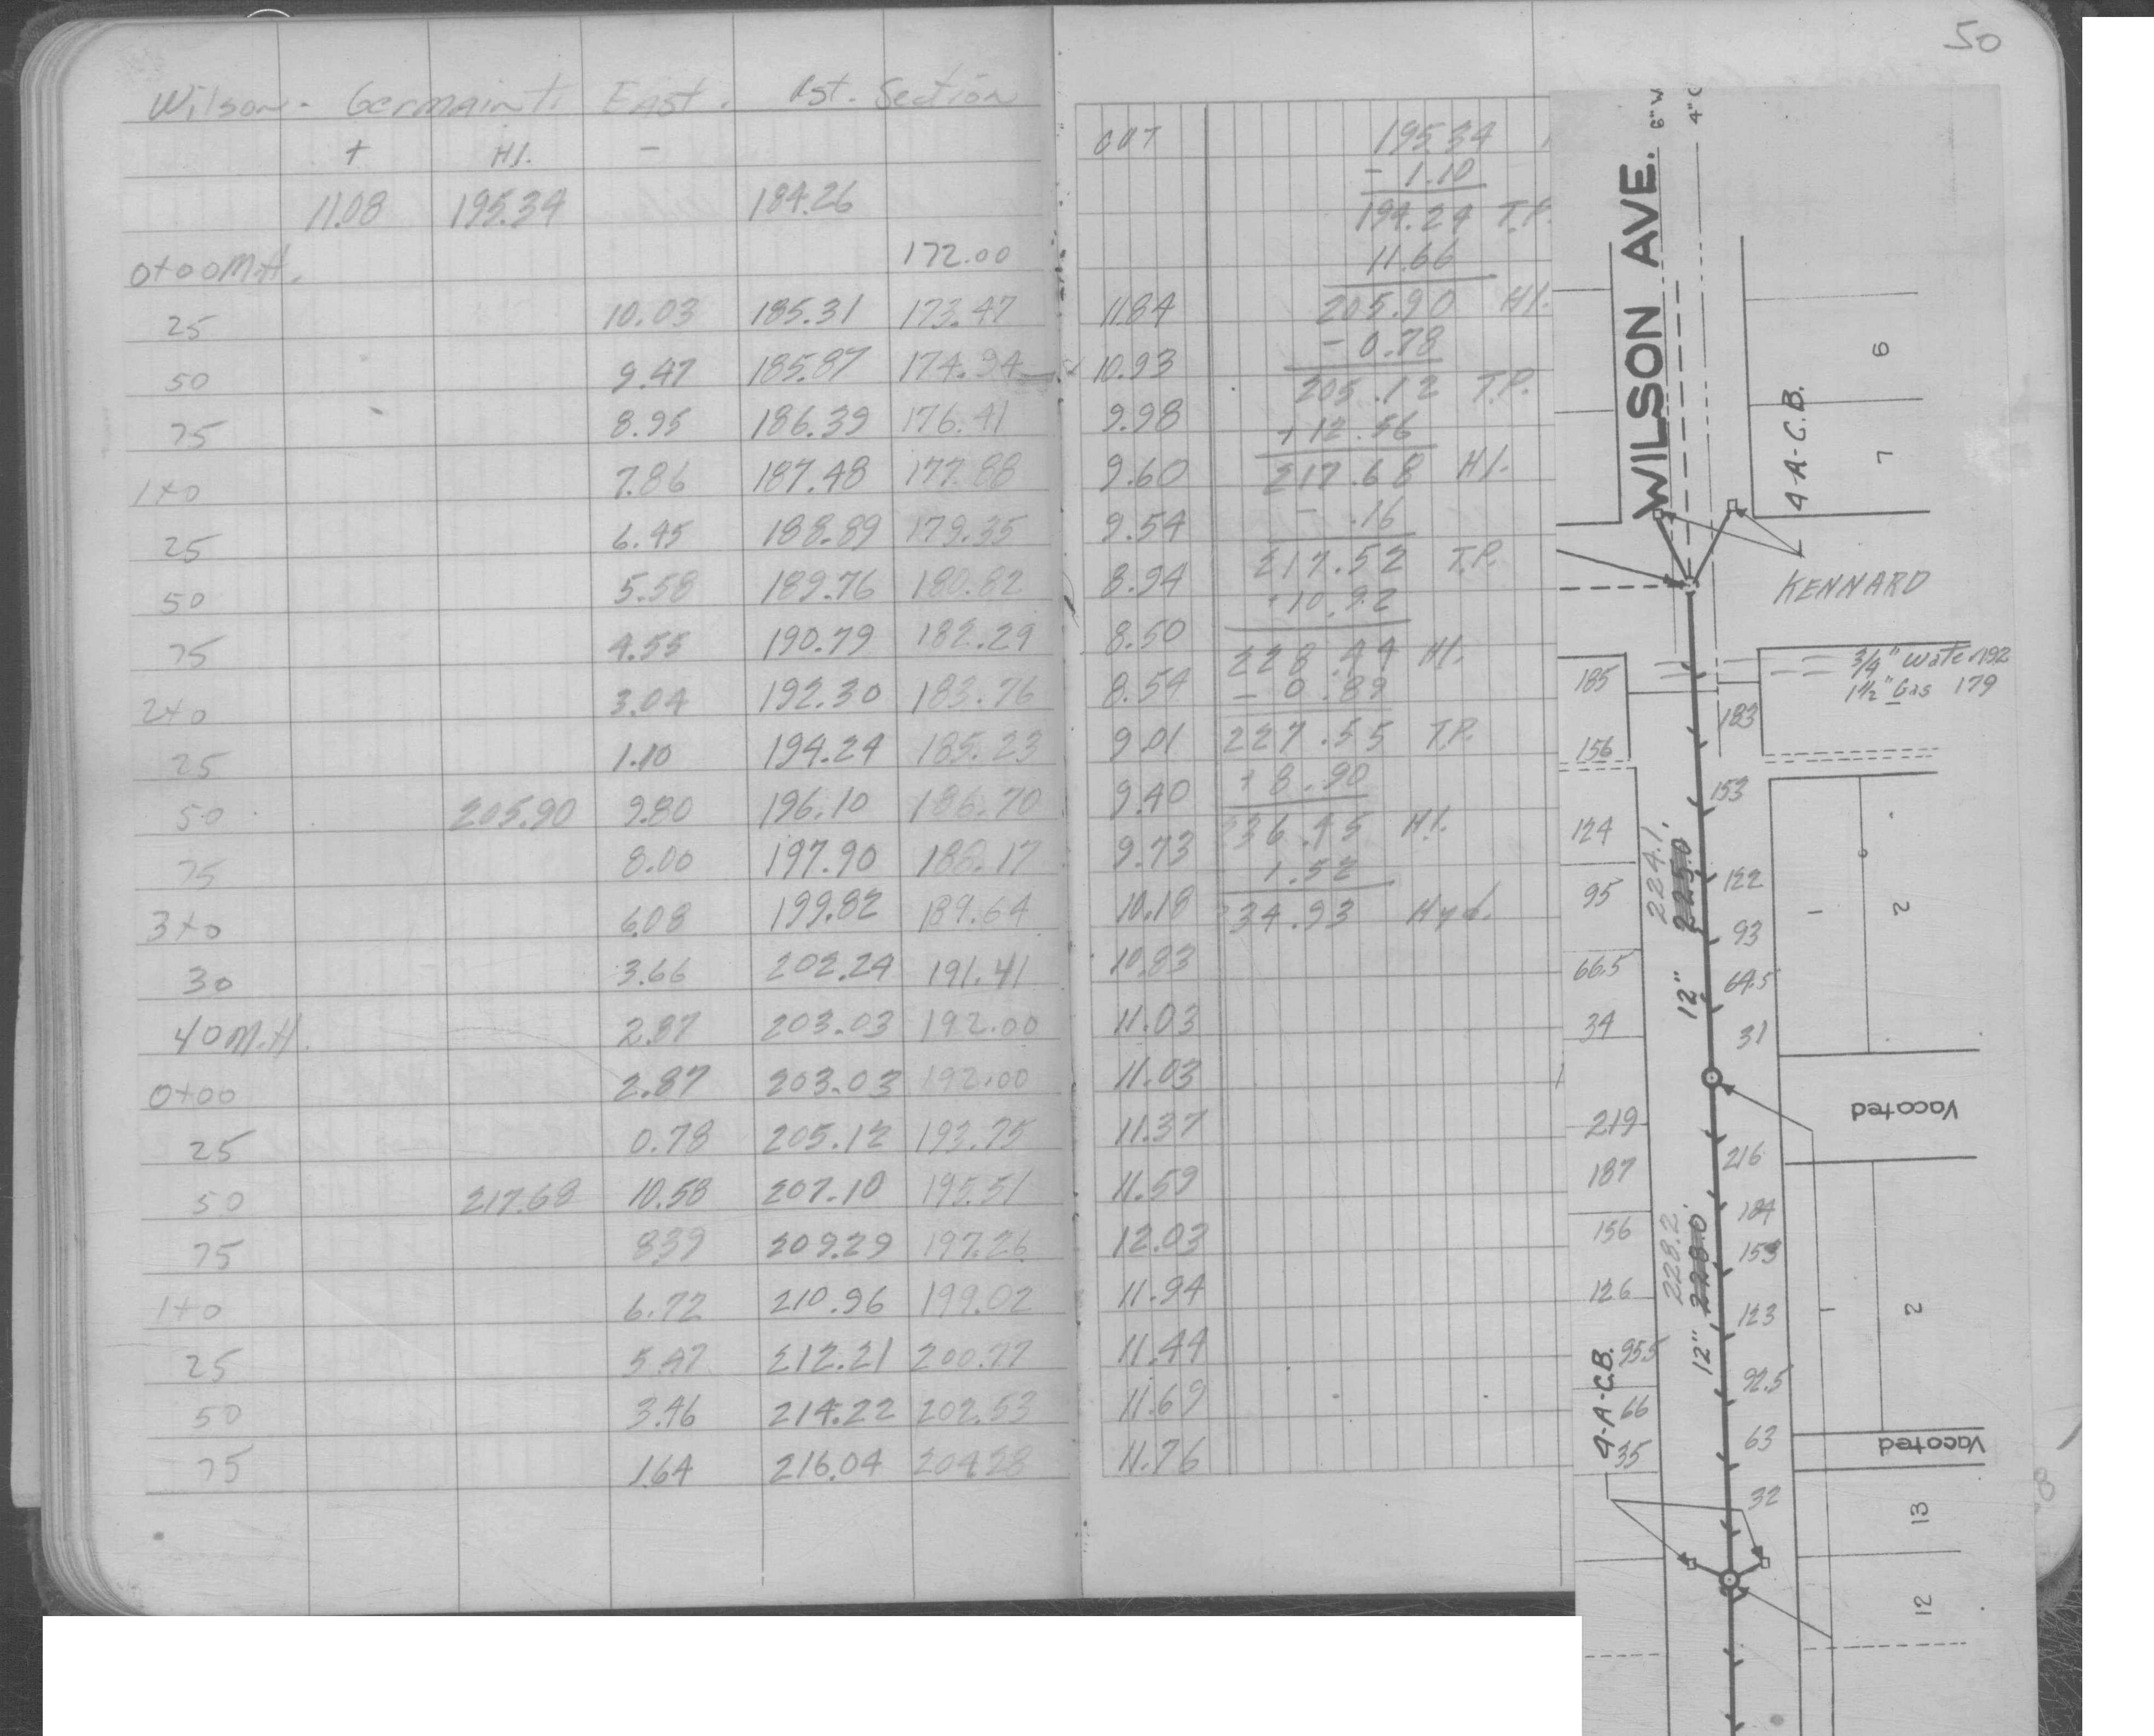 50
Wilson - Germain t. East. 1st. Section
+ H.I. -
11.08 195.34 184.26
0+00 M.H. 172.00
25 10.03 185.31 173.47
50 9.47 185.87 174.94
75 8.95 186.39 176.41
1+0 7.86 187.48 177.88
25 6.45 188.89 179.35
50 5.58 189.76 180.82
75 4.55 190.79 182.29
2+0 3.04 192.30 183.76
25 1.10 194.24 185.23
50 205.90 9.80 196.10 186.70
75 8.00 197.90 188.17
3+0 6.08 199.82 189.64
30 3.66 202.24 191.41
40 M.H. 2.87 203.03 192.00
0+00 2.87 203.03 192.00
25 0.78 205.12 193.75
50 217.68 10.58 207.10 195.51
75 8.39 209.29 197.26
1+0 6.72 210.96 199.02
25 5.47 212.21 200.77
50 3.46 214.22 202.53
75 1.64 216.04 204.28
CUT
11.84
10.93
9.98
9.60
9.54
8.94
8.50
8.54
9.01
9.40
9.73
10.18
10.83
11.03
11.03
11.37
11.59
12.03
11.94
11.44
11.69
11.76
195.34
- 1.10
194.24 T.P.
11.66
205.90 H.I.
- 0.78
205.12 T.P.
+ 12.56
217.68 H.I.
- .16
217.52 T.P.
+10.92
228.44 H.I.
- 0.89
227.55 T.P.
+ 8.90
236.45 H.I.
1.52
234.93 Hyd.
WILSON AVE.
6" W
4" G
4-A-C.B.
6
7
KENNARD
3/4" Water 192
1 1/2" Gas 179
185
183
156
153
124
122
95
93
66.5
64.5
34
31
224.1'
225.0
12"
1
2
Vacated
219
216
187
184
156
153
126
123
95.5
92.5
66
63
35
32
228.2'
228.0'
12"
4-A-C.B.
1
2
Vacated
13
12